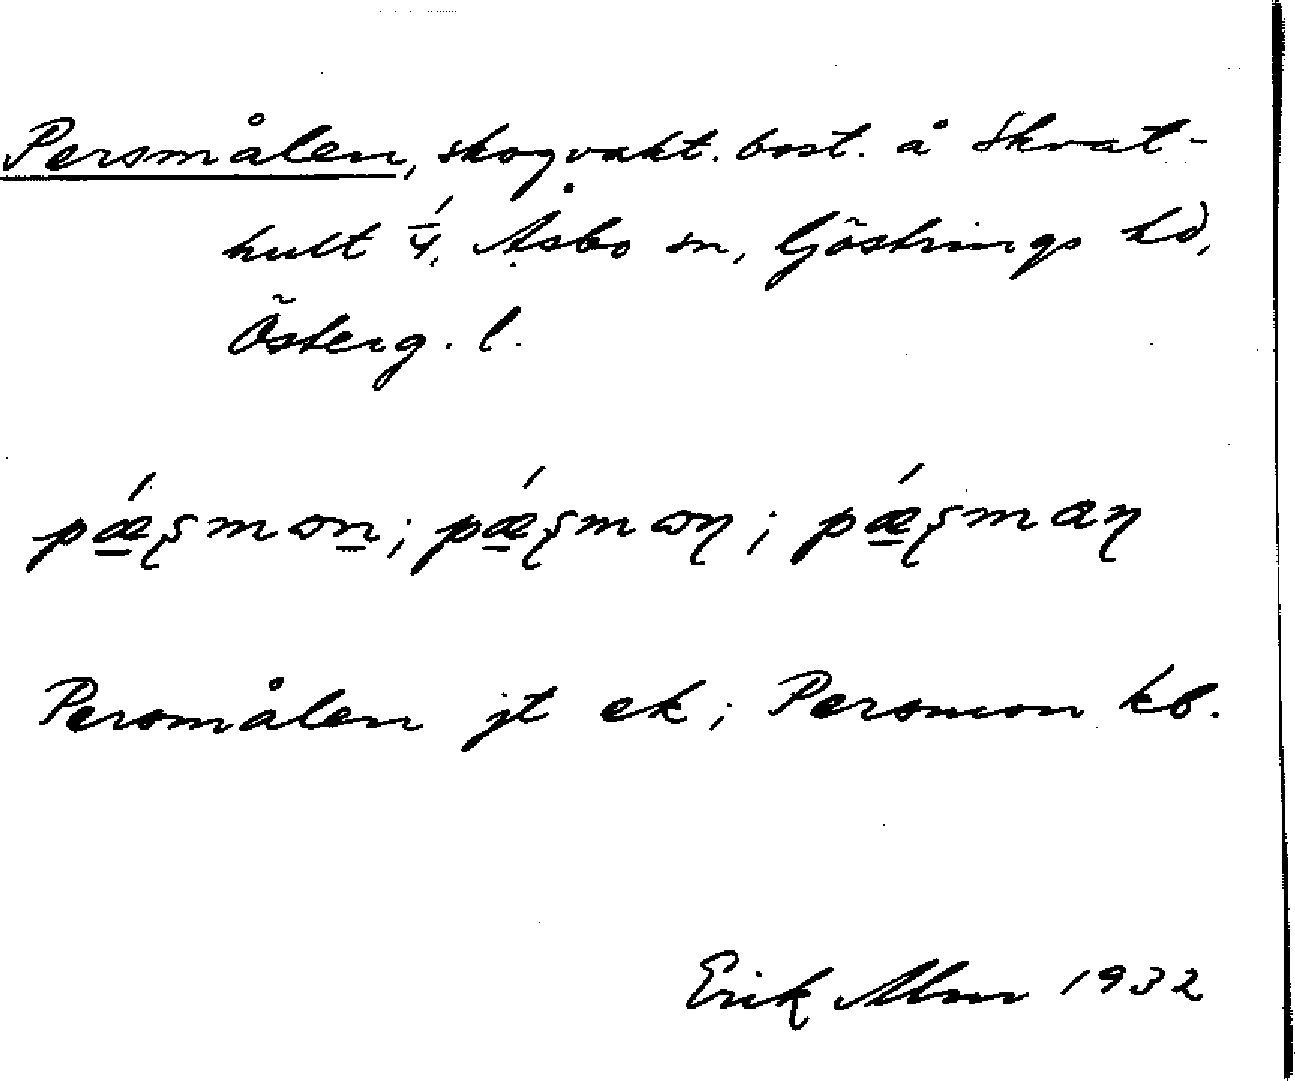 Persmålen, skogvakt. bost. å Skvat-
hult 1/4, Åsbo sn, Göstrings hd,
Österg. l.
pǽʂmɷn; pǽʂmɷɳ; pǽʂmaɳ
Persmålen jt ek; Persmon kb.
Erik Alm 1932